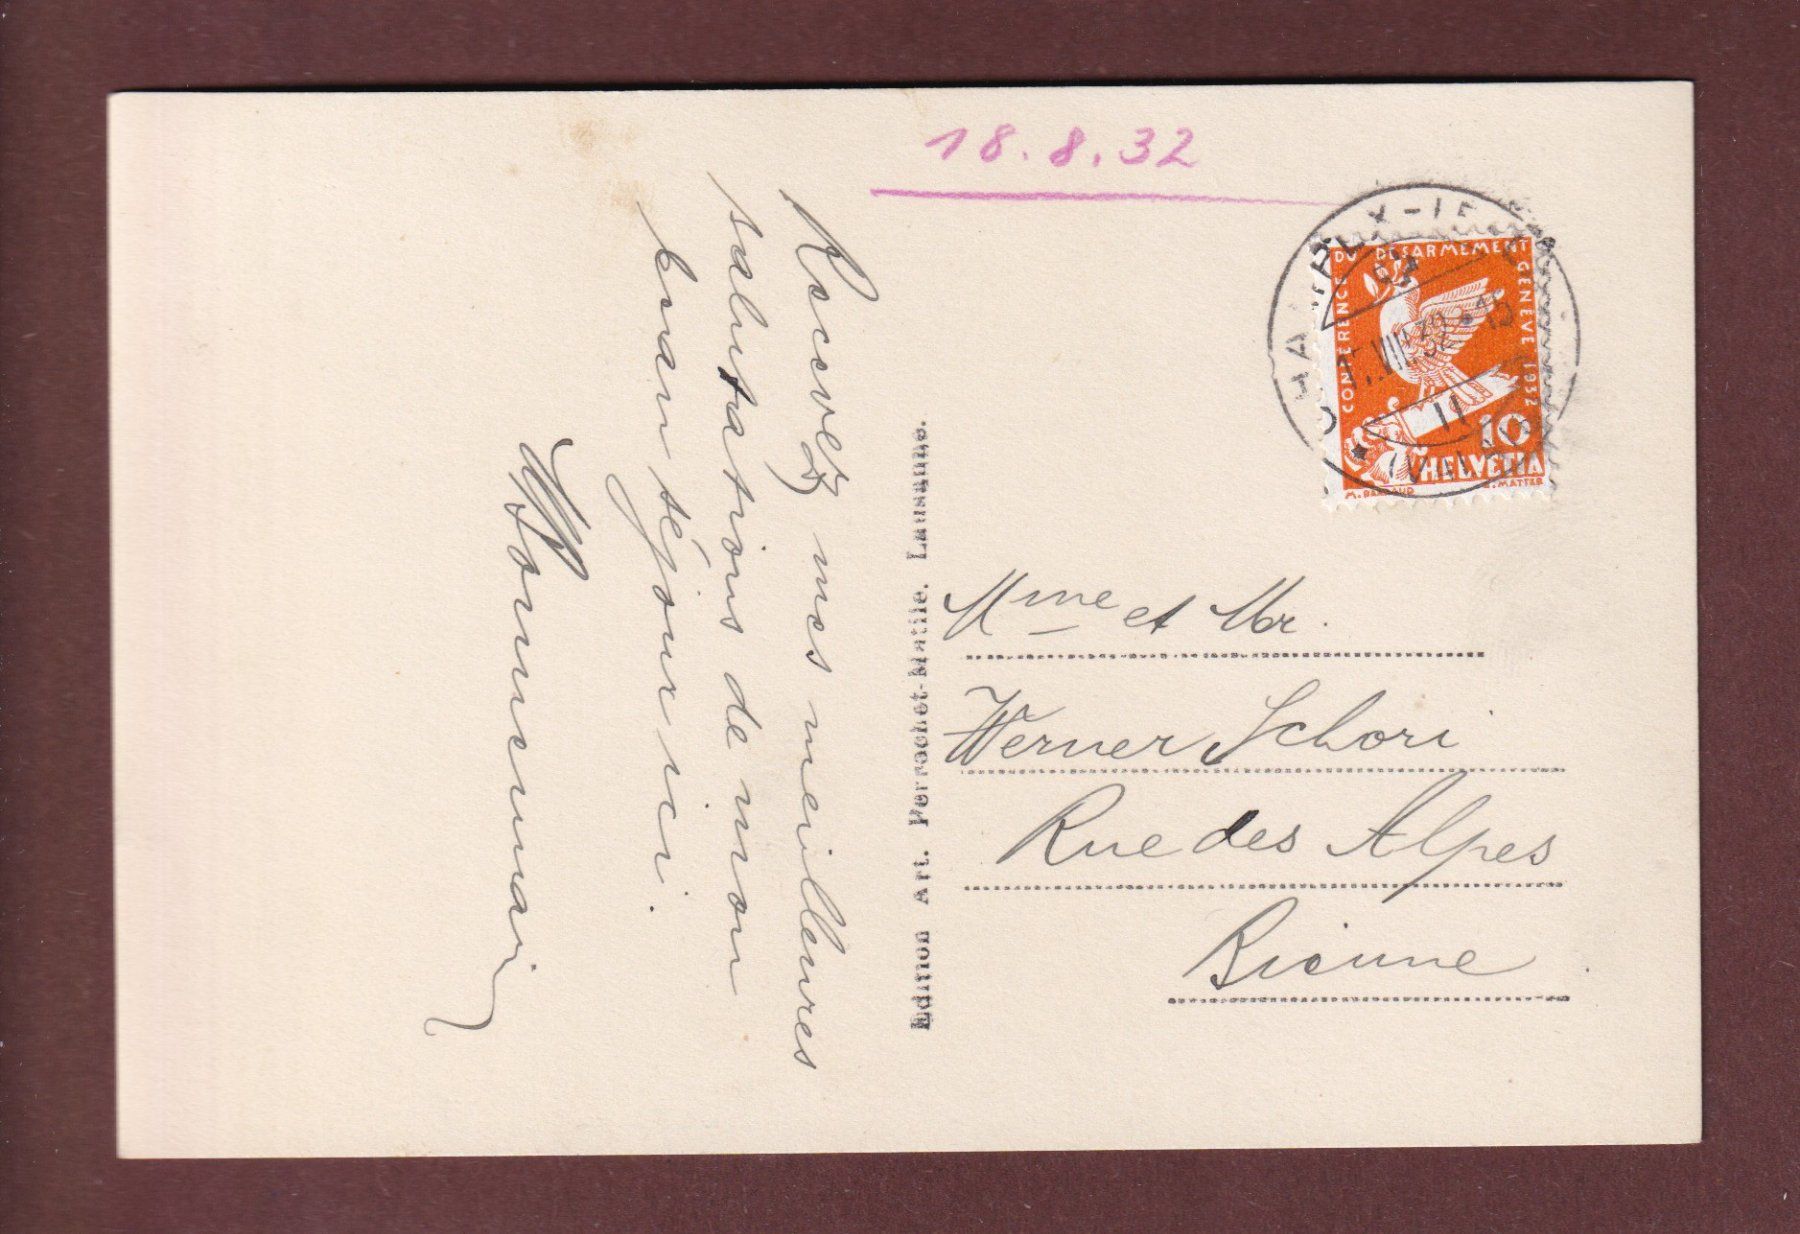 18.8.32
Recevez mes meilleures
salutations de mon
beau séjour ici.
Edition Art. Perrochet-Matile. Lausanne.
CONFERENCE DU DESARMEMENT GENEVE 1932
10
HELVETIA
M. BARRAUD
MATTER
Mme et Mr.
Werner Schori
Rue des Alpes
Bienne